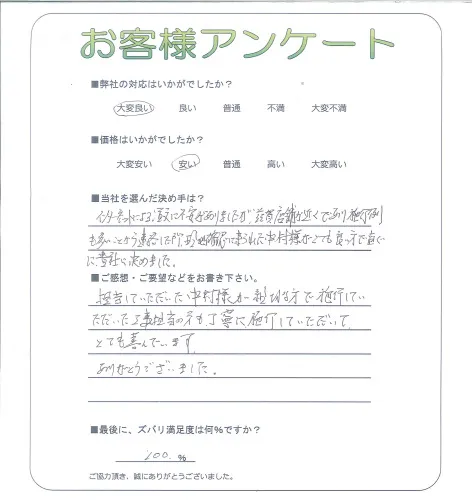 お客様アンケート
■弊社の対応はいかがでしたか？
大変良い 良い 普通 不満 大変不満
■価格はいかがでしたか？
大変安い 安い 普通 高い 大変高い
■当社を選んだ決め手は？
インターネットによる 不安がありましたが、滋賀店舗が近くであり施行例
も多いことから連絡した所、現地 に来られた中村様がとても良い方で直ぐ
に貴社に決めました。
■ご感想・ご要望などをお書き下さい。
担当していただいた中村様が親切な方で施行してい
ただいた工事担当の方も丁寧に施行していただいて
とても喜んでいます。
ありがとうございました。
■最後に、ズバリ満足度は何%ですか？
100 %
ご協力頂き、誠にありがとうございました。